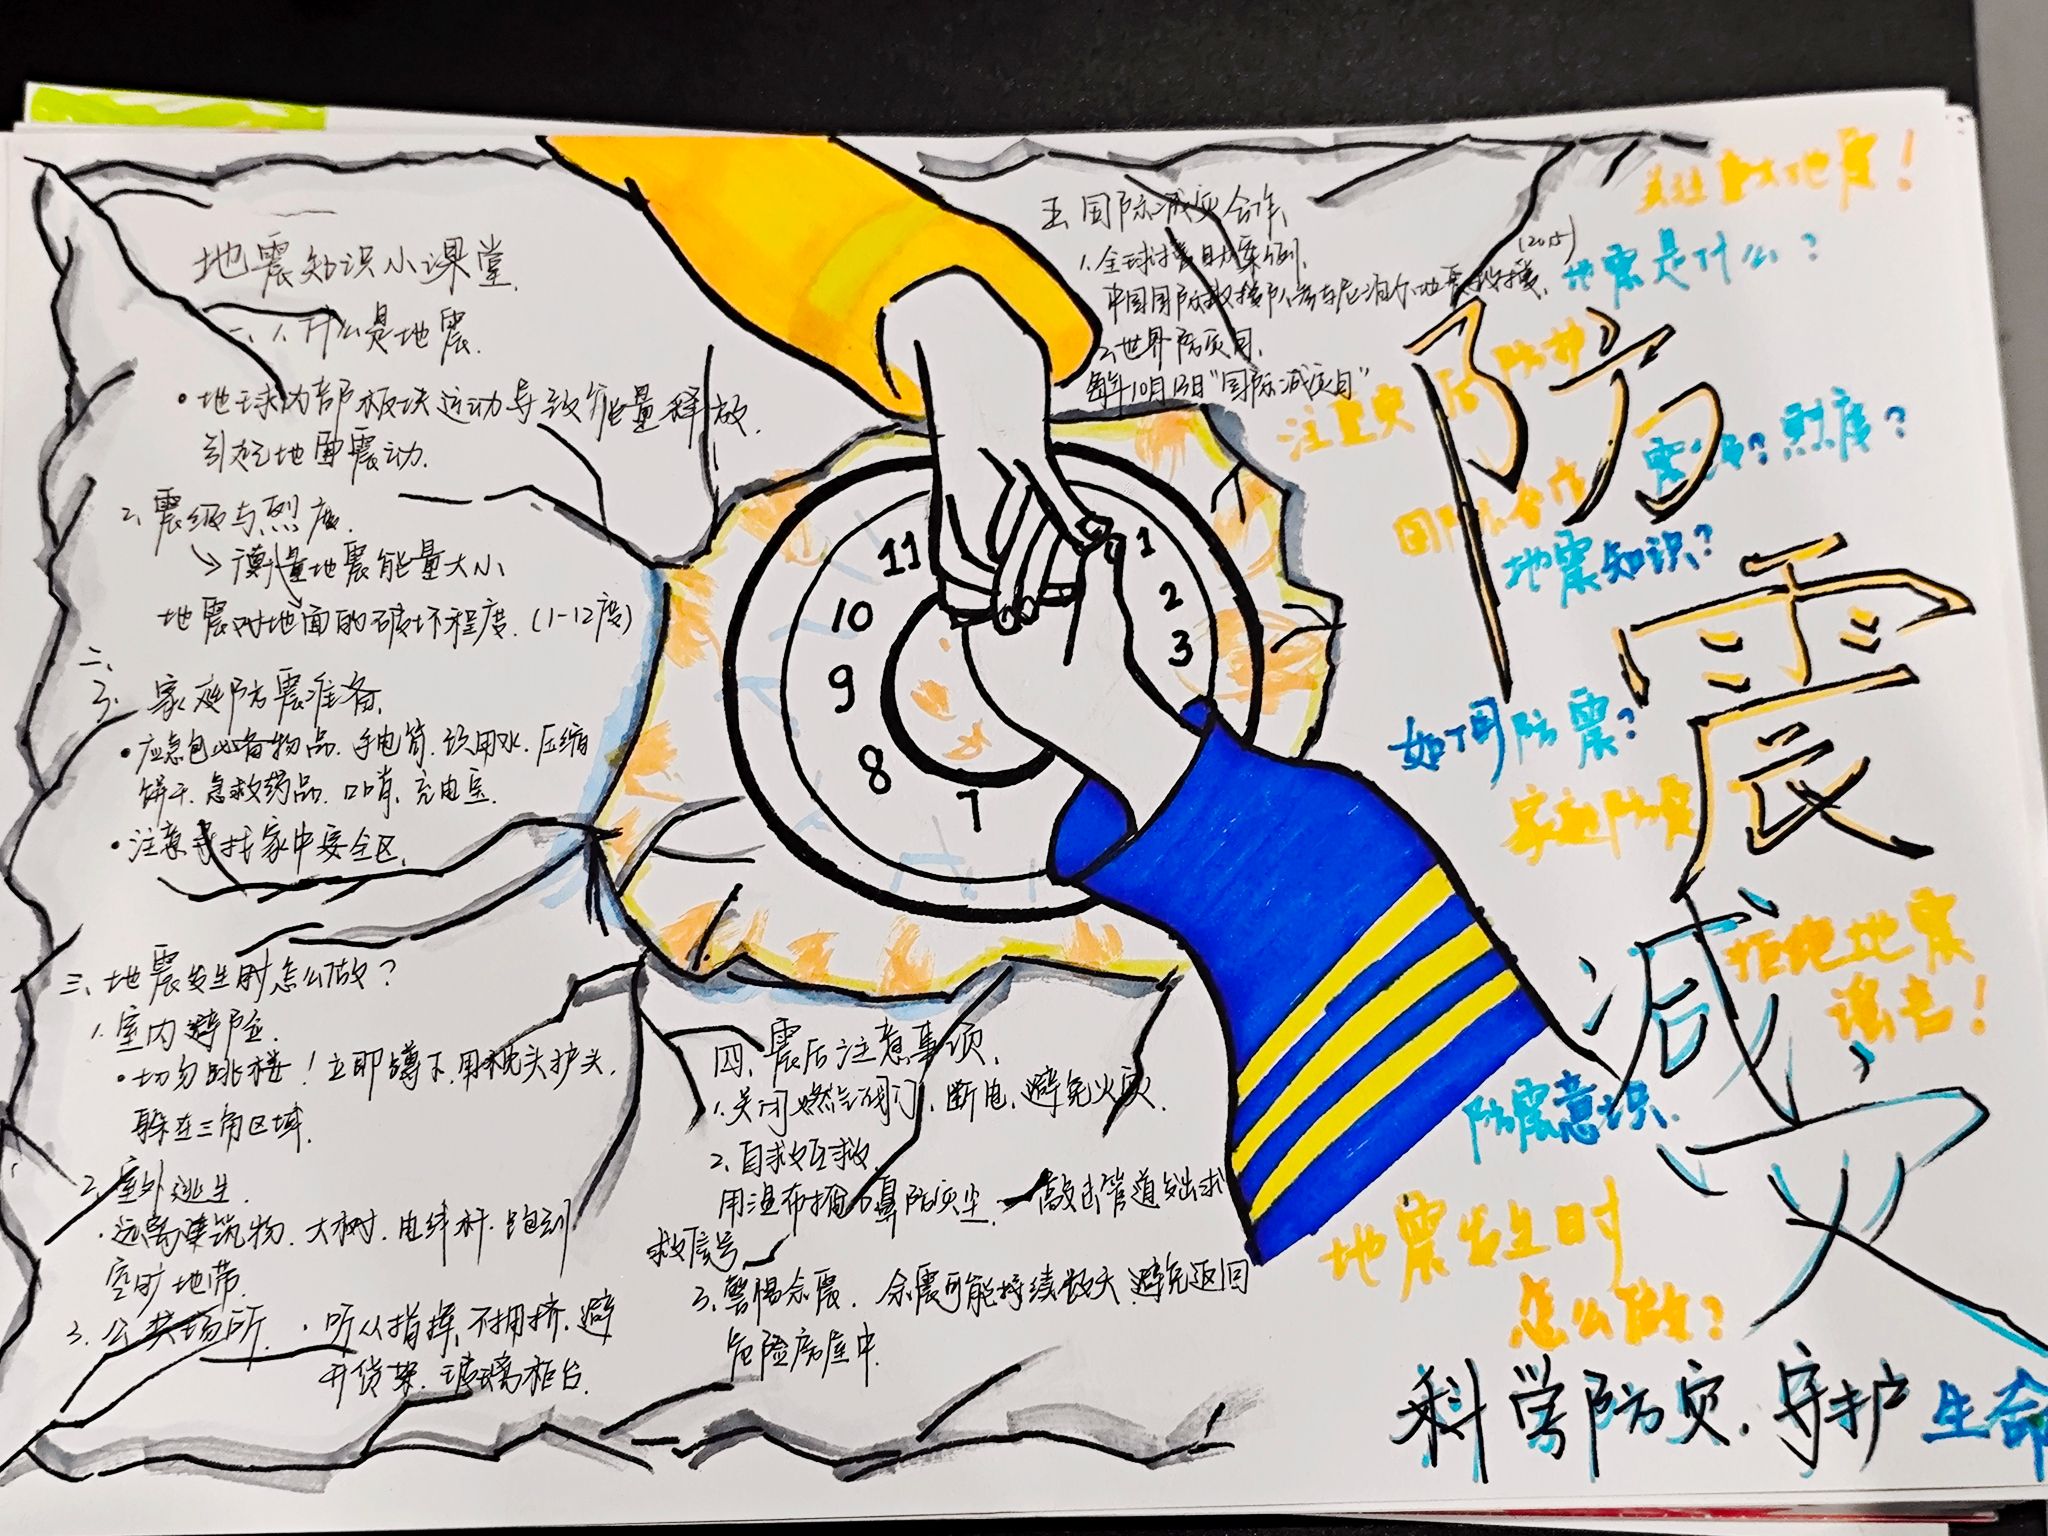 地震知识小课堂.
一、1.什么是地震.
•地球内部板块运动导致能量释放.
引起地面震动.
2.震级与烈度.
↘衡量地震能量大小
地震对地面的破坏程度.(1-12度)
二、
3. 家庭防震准备.
•应急包必备物品.手电筒.饮用水.压缩
饼干.急救药品.口哨.充电宝.
•注意寻找家中安全区.
三、地震发生时怎么做?
1.室内避险.
•切勿跳楼!立即蹲下.用枕头护头.
躲在三角区域.
2.室外逃生.
•远离建筑物.大树.电线杆.跑到
空旷地带.
3.公共场所.•听从指挥,不拥挤.避
开货架.玻璃柜台.
四、震后注意事项.
1.关闭燃气阀门、断电、避免火灾.
2.自求好互救.
用湿布捂口鼻防灰尘. 敲击管道发出求
救信号
3.警惕余震. 余震可能持续数天.避免返回
危险房屋中.
五.国际减灾合作.
1.全球援助案例.
(2015)
中国国际救援队参与尼泊尔地震救援.
2.世界防灾日.
每年10月13日"国际减灾日"
11
10
9
8
7
1
2
3
关注重大地震!
地震是什么?
注重灾后防护
震级?烈度?
国际合作
地震知识?
如何防震?
家庭防震
拒绝地震
谣言!
防震意识.
地震发生时
怎么做?
防震减灾
科学防灾.守护生命